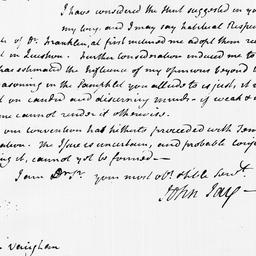 I have considered the Hint suggested in yo
my long, and I may say habitual Respec
of Dr. Franklin, at first induced me adopt them
in Question. Further Consideration induced me to
has estimated the Influence of my opinions beyond
reasoning in the Pamphlet you allude to is just, it
on candid and discerning minds—if weak &
me cannot render it otherwise.
our convention has hitherto proceeded with Tem
ation. The Issue is uncertain, and probable conje
ing it, cannot yet be formed—
I am Dr Sr. your most obt. & hble Servt.
John Jay—
Vaughan